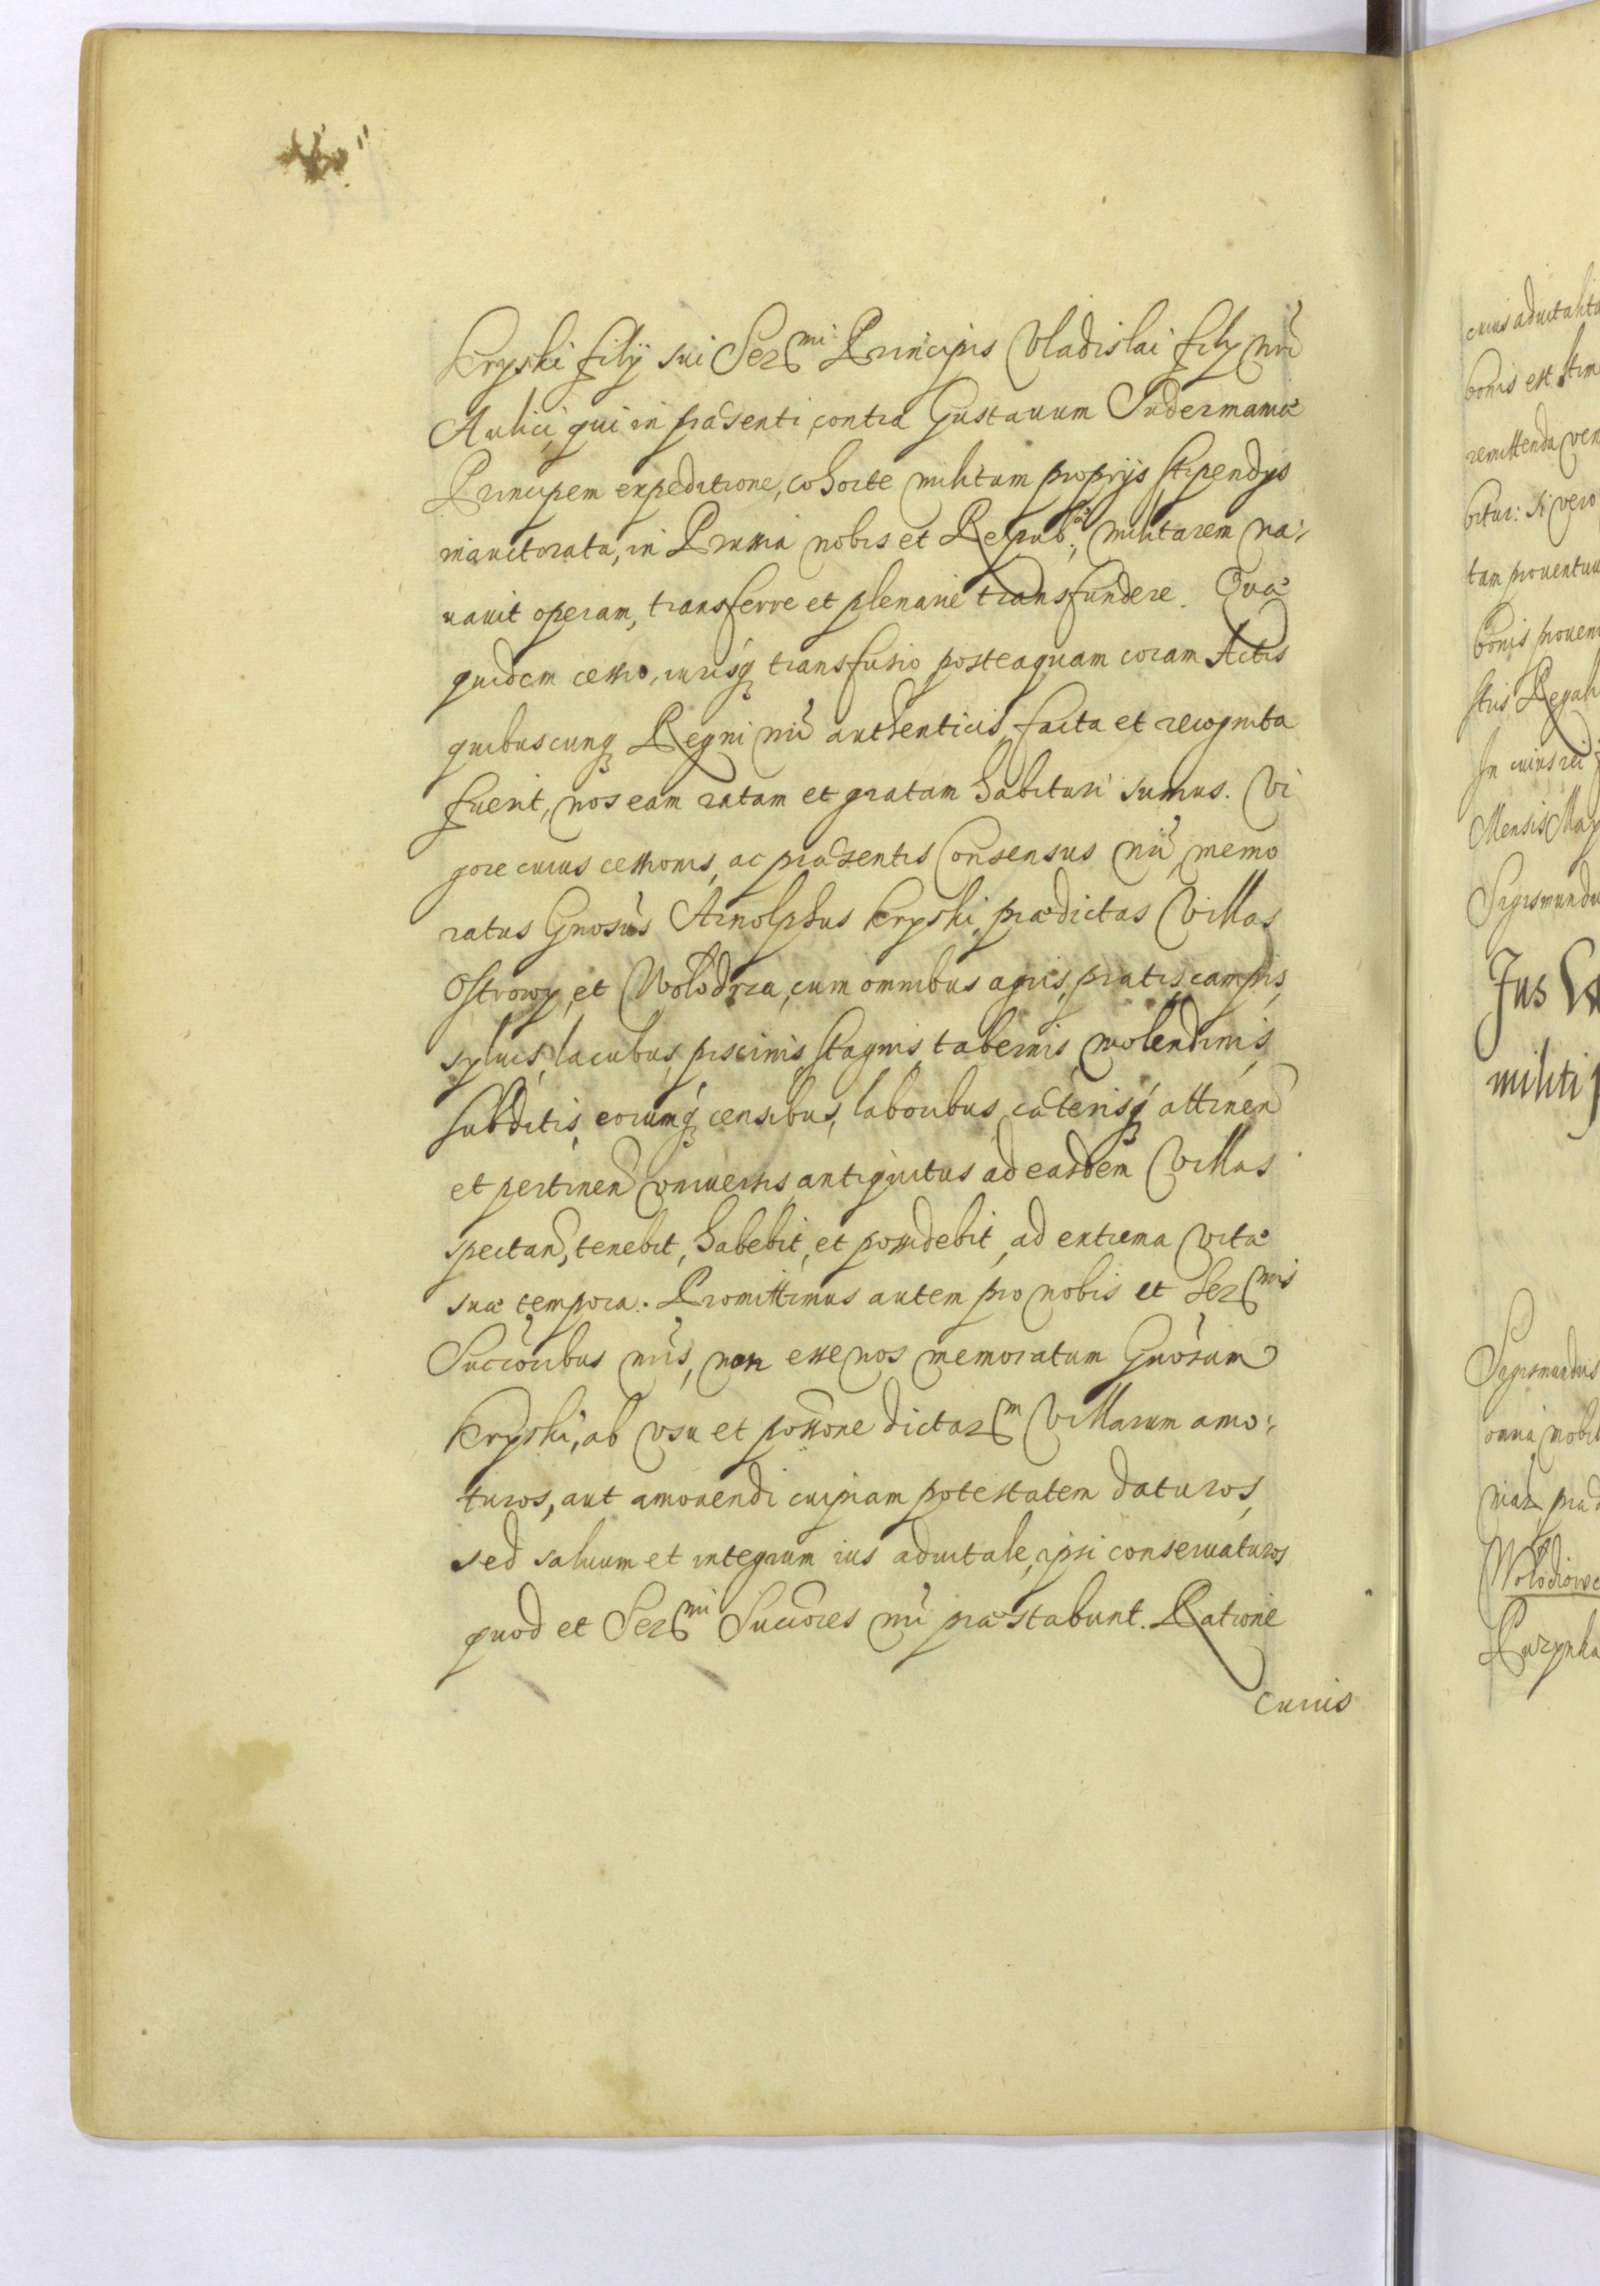 Kryski filÿ sui Ser[mi] Principis Vladislai filÿ nri
Aulici, qui in præsenti, contra Gustauum Sudermaniæ
Principem expeditione, cohorte militum proprijs stipendijs
inauctorata, in Prussia nobis et Repub:cæ militarem na:
uauit operam, transferre et plenarie transfundere. Quæ
quidem cessio, iurisq transfusio posteaquam coram Actis
quibuscunq Regni nri authenticis, facta et recognita
fuerit, nos eam ratam et gratam habituri sumus. Vi
gore cuius cessionis, ac præsentis Consensus nri, memo
ratus Gnosus Arnolphus Kryski, prædictas Villas
Ostrowy, et Wolodrza, cum omnibus agris, pratis, campis,
syluis, lacubus, piscinis, stagnis, tabernis, molendinis,
subditis, eorumq censibus, laboribus, cæterisq attinen
et pertinen vniuersis, antiquitus ad easdem Villas
spectan, tenebit, habebit, et possidebit, ad extrema vitæ
suæ tempora. Promittimus autem pro nobis et Ser[mis]
Succoribus nris, non esse nos memoratum Gnosum
Kryski, ab vsu et possone dictar[m] Villarum amo:
turos, aut amouendi cuipiam potestatem daturos,
sed saluum et integrum ius aduitale, ipsi conseruaturos
quod et Ser[mi] Succores nri præstabunt. Ratione
cuius
cuius aduitalita
bonis est
remittenda ven
bitur: si vero
tam prouentuu
bonis prouen
stris Regali
In cuius rei
Mensis May
Sigismundu
Jus
militi
Sigismundus
omnia, nobil
niar præd
Wolodiowc